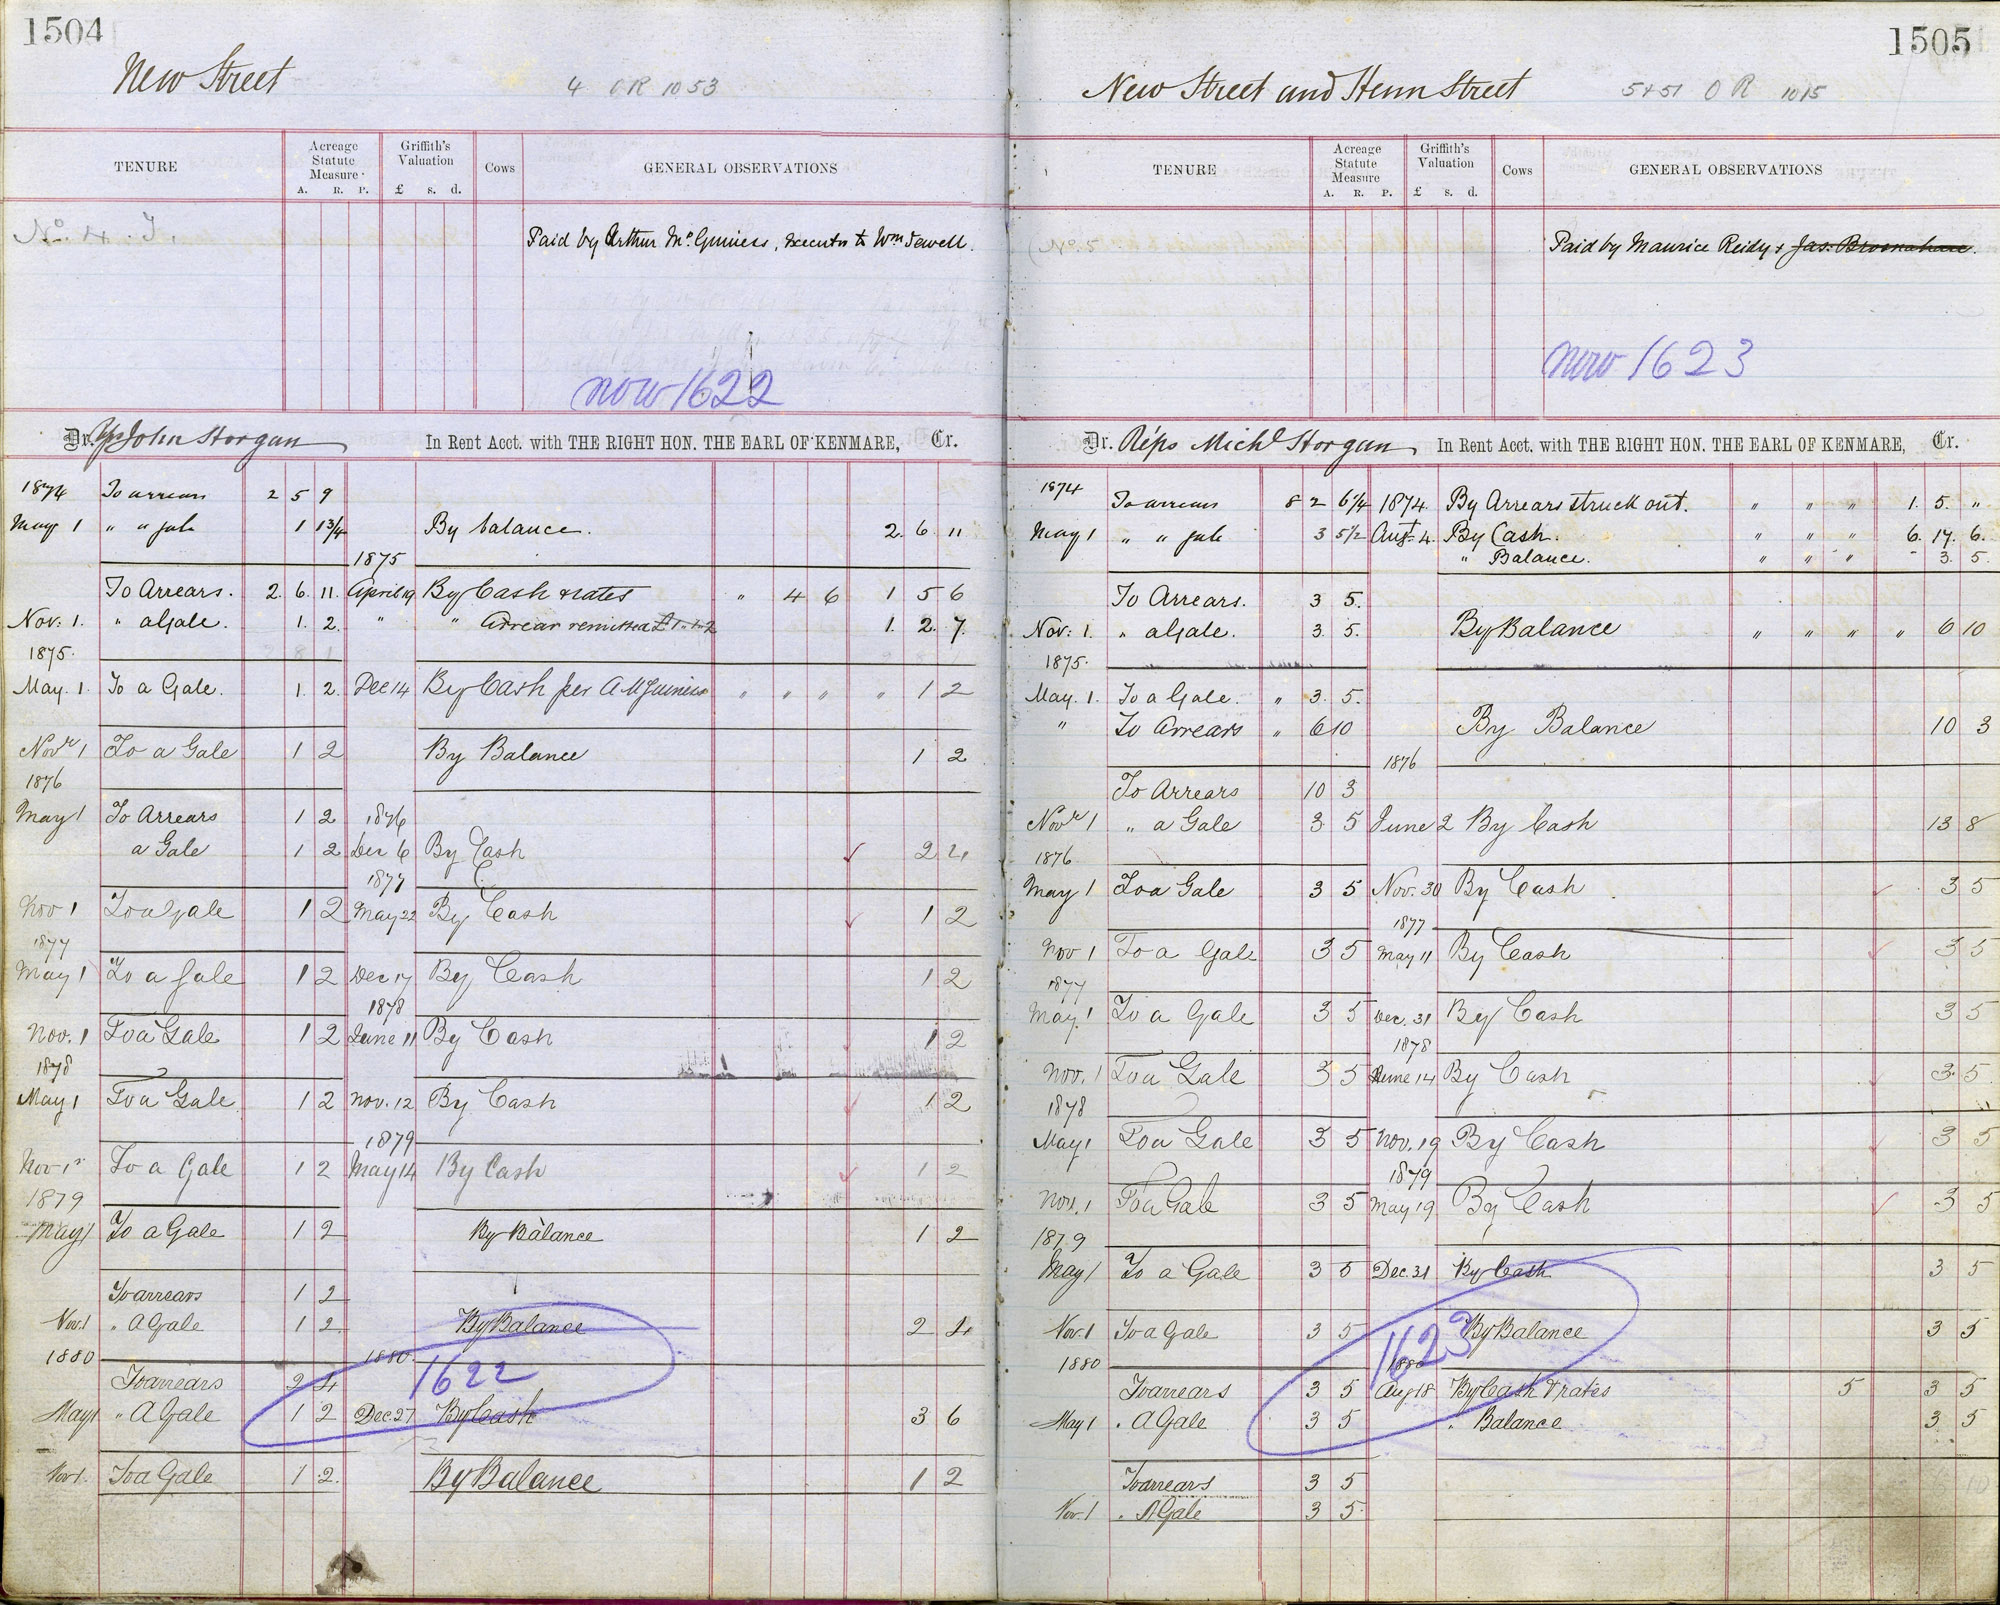 1504
New Street
4 OR 1053
TENURE
Acreage Statute Measure
A. R. P.
Griffith's Valuation
£ s. d.
Cows
GENERAL OBSERVATIONS
No. 4.
Paid by Arthur Mc.Guiniess, executor to Wm Jewell.
now 1622
Dr. John Horgan In Rent Acct. with THE RIGHT HON. THE EARL OF KENMARE, Cr.
1874 To arrears 2 5 9
May 1 " " gale 1 1 3/4 By balance. 2. 6. 11
1875
To Arrears. 2. 6. 11. April 19 By Cash & rates " 4 6 1 5 6
Nov: 1. " a Gale. 1. 2. " " Arrear remitted 1. 2. 7.
1875.
May. 1. To a Gale. 1. 2. Dec 14 By Cash per A McGuiniess " " " " 1 2
Novr 1 To a Gale 1 2 By Balance 1 2
1876
May 1 To Arrears 1 2 1876
a Gale 1 2 Dec 6 By Cash 2 4
1877
Nov 1 To a gale 1 2 May 22 By Cash 1 2
1877
May 1 To a gale 1 2 Dec 17 By Cash 1 2
1878
Nov. 1 To a Gale 1 2 June 11 By Cash 1 2
1878
May 1 To a Gale 1 2 Nov. 12 By Cash 1 2
1879
Nov 1 To a Gale 1 2 May 14 By Cash 1 2
1879
May 1 To a Gale 1 2 By Balance 1 2
To arrears 1 2
Nov. 1 " A Gale 1 2 By Balance 2 4
1880 1880
To arrears 2 4 1622
May 1 " A Gale 1 2 Dec. 27 By Cash 3 6
Nov 1. To a Gale 1 2. By Balance 1 2
1505
New Street and Henn Street
5 & 51 OR 1015
TENURE
Acreage Statute Measure
A. R. P.
Griffith's Valuation
£ s. d.
Cows
GENERAL OBSERVATIONS
No. 5
Paid by Maurice Reidy & Jas: Brosnahan.
now 1623
Dr. Reps Michl Horgan In Rent Acct. with THE RIGHT HON. THE EARL OF KENMARE, Cr.
1874 To arrears 8 2 6 1/4 1874. By Arrears struck out. " " " 1. 5. "
May 1 " " gale 3 5 1/2 Aust. 4. By Cash. " " " 6. 17. 6.
" Balance. " " " - 3. 5.
To Arrears. 3 5.
Nov: 1. " a Gale. 3. 5. By Balance " " " " 6 10
1875.
May. 1. To a Gale. " 3. 5.
" To Arrears " 6 10 By Balance 10 3
1876
To Arrears 10 3
Novr 1 " a Gale 3 5 June 2 By Cash 13 8
1876
May 1 To a Gale 3 5 Nov. 30 By Cash 3 5
1877
Nov 1 To a Gale 3 5 May 11 By Cash 3 5
1877
May. 1 To a Gale 3 5 Dec. 31 By Cash 3 5
1878
Nov. 1 To a Gale 3 5 June 14 By Cash 3. 5
1878
May 1 To a Gale 3 5 Nov. 19 By Cash 3 5
1879
Nov. 1 To a Gale 3 5 May 19 By Cash 3 5
1879
May 1 To a Gale 3 5 Dec. 31 By Cash 3 5
Nov. 1 To a Gale 3 5 By Balance 3 5
1880 1623 1880
To arrears 3 5 Aug 18 By Cash & rates 5 3 5
May 1 . A Gale 3 5 . Balance 3 5
To arrears 3 5
Nov. 1 . A Gale 3 5.